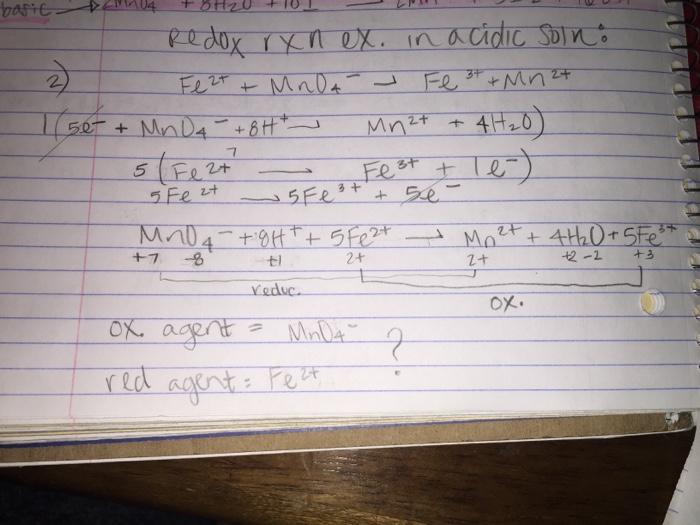 basic
Redox rxn ex. in acidic soln:
2) Fe²⁺ + MnO₄⁻ → Fe³⁺ + Mn²⁺
1(5e⁻ + MnO₄⁻ + 8H⁺ → Mn²⁺ + 4H₂O)
5(Fe²⁺ → Fe³⁺ + 1e⁻)
5Fe²⁺ → 5Fe³⁺ + 5e⁻
MnO₄⁻ + 8H⁺ + 5Fe²⁺ → Mn²⁺ + 4H₂O + 5Fe³⁺
+7 -8 +1 2+ 2+ +2 -2 +3
reduc.
ox.
ox. agent = MnO₄⁻ ?
red agent: Fe²⁺